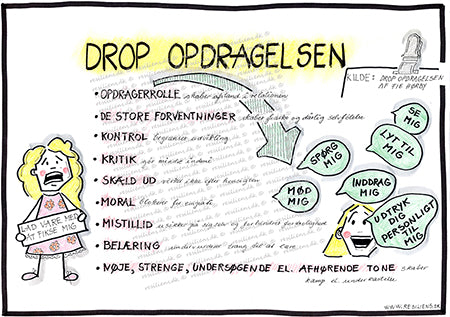 DROP OPDRAGELSEN
KILDE: DROP OPDRAGELSEN
AF TIE HORBY
• OPDRAGERROLLE skaber afstand i relationen
• DE STORE FORVENTNINGER skaber pres og dårlig selvfølelse
• KONTROL begrænser udvikling
• KRITIK gør mindre
• SKÆLD UD virker ikke efter hensigten
• MORAL blokerer for
• MISTILLID
• BELÆRING underminerer trang til at lære
• NØJE, STRENGE, UNDERSØGENDE EL. AFHØRENDE TONE skaber
kamp el. underkastelse
SE MIG
LYT TIL
MIG
SPØRG
MIG
MØD
MIG
INDDRAG
MIG
UDTRYK
DIG
PERSONLIGT
TIL
MIG
LAD VÆRE MED
AT FIKSE MIG
WWW.RESILIENS.DK